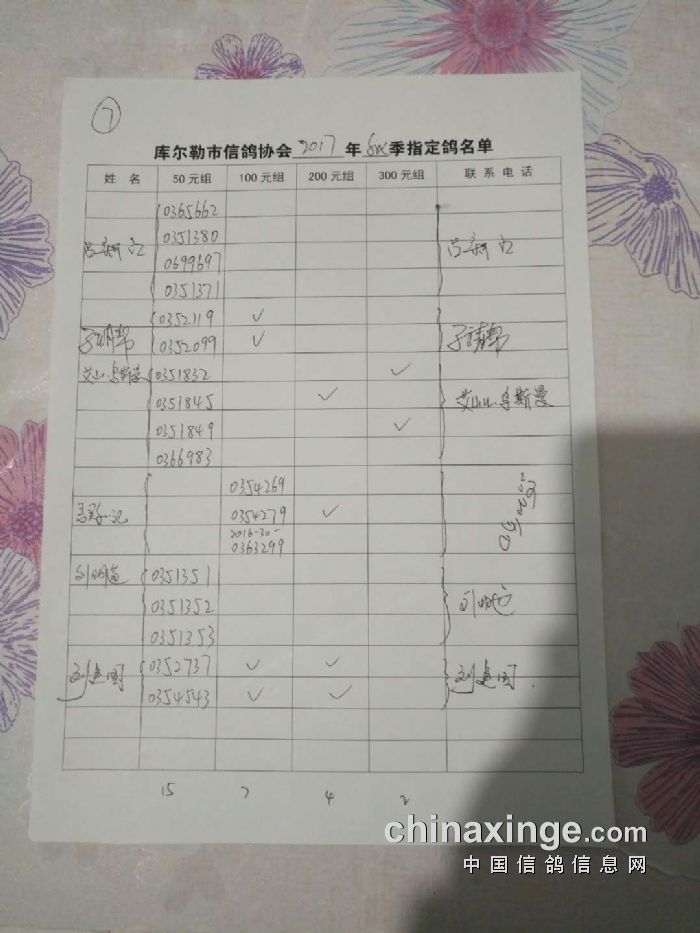 7
库尔勒市信鸽协会 2017 年 秋季指定鸽名单
姓 名 50元组 100元组 200元组 300元组 联系电话
0365662
0351380
吕新江 0699697 吕新江
0351371
0352119 ✓
0352099 ✓
艾山.乌斯曼 0351832 ✓
0351845 ✓ 艾山.乌斯曼
0351849 ✓
0366983
0354269
0354279 ✓
2016-30-
0363299
0351351
0351352
0351353
刘建国 0352737 ✓ ✓ 刘建国
0354543 ✓ ✓
15 7 4 2
chinaxinge.com
中国信鸽信息网